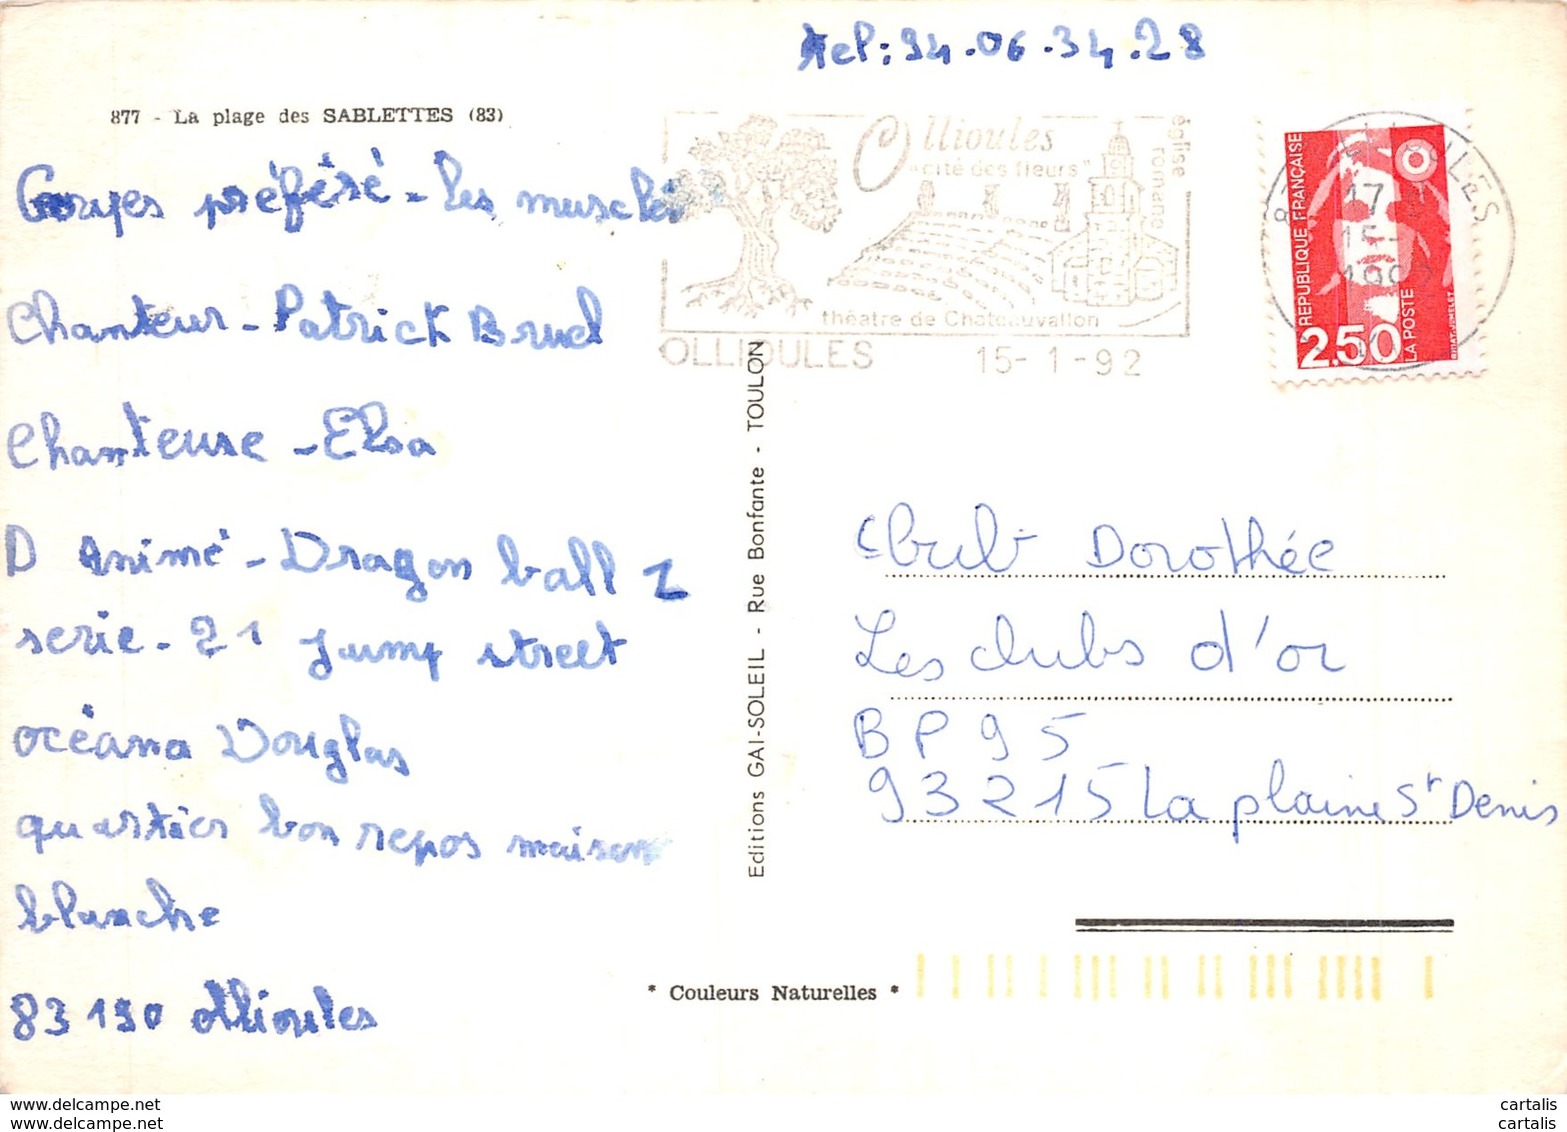 tel: 94.06.34.28
877 - La plage des SABLETTES (83)
Groupes préféré - les musclés
Chanteur - Patrick Bruel
Chanteuse - Elsa
D Animé - Dragon ball Z
serie - 21 Jump street
océana Douglas
quartier bon repos maison
blanche
83 190 ollioules
Ollioules
"cité des fleurs"
église romane
théâtre de Châteauvallon
OLLIOULES 15-1-92
Editions GAI-SOLEIL - Rue Bonfante - TOULON
OLLIOULES
17
15-
1992
REPUBLIQUE FRANÇAISE
2,50
LA POSTE
Club Dorothée
Les clubs d'or
BP 95
93215 La plaine St Denis
* Couleurs Naturelles *
cartalis
cartalis
cartalis
cartalis